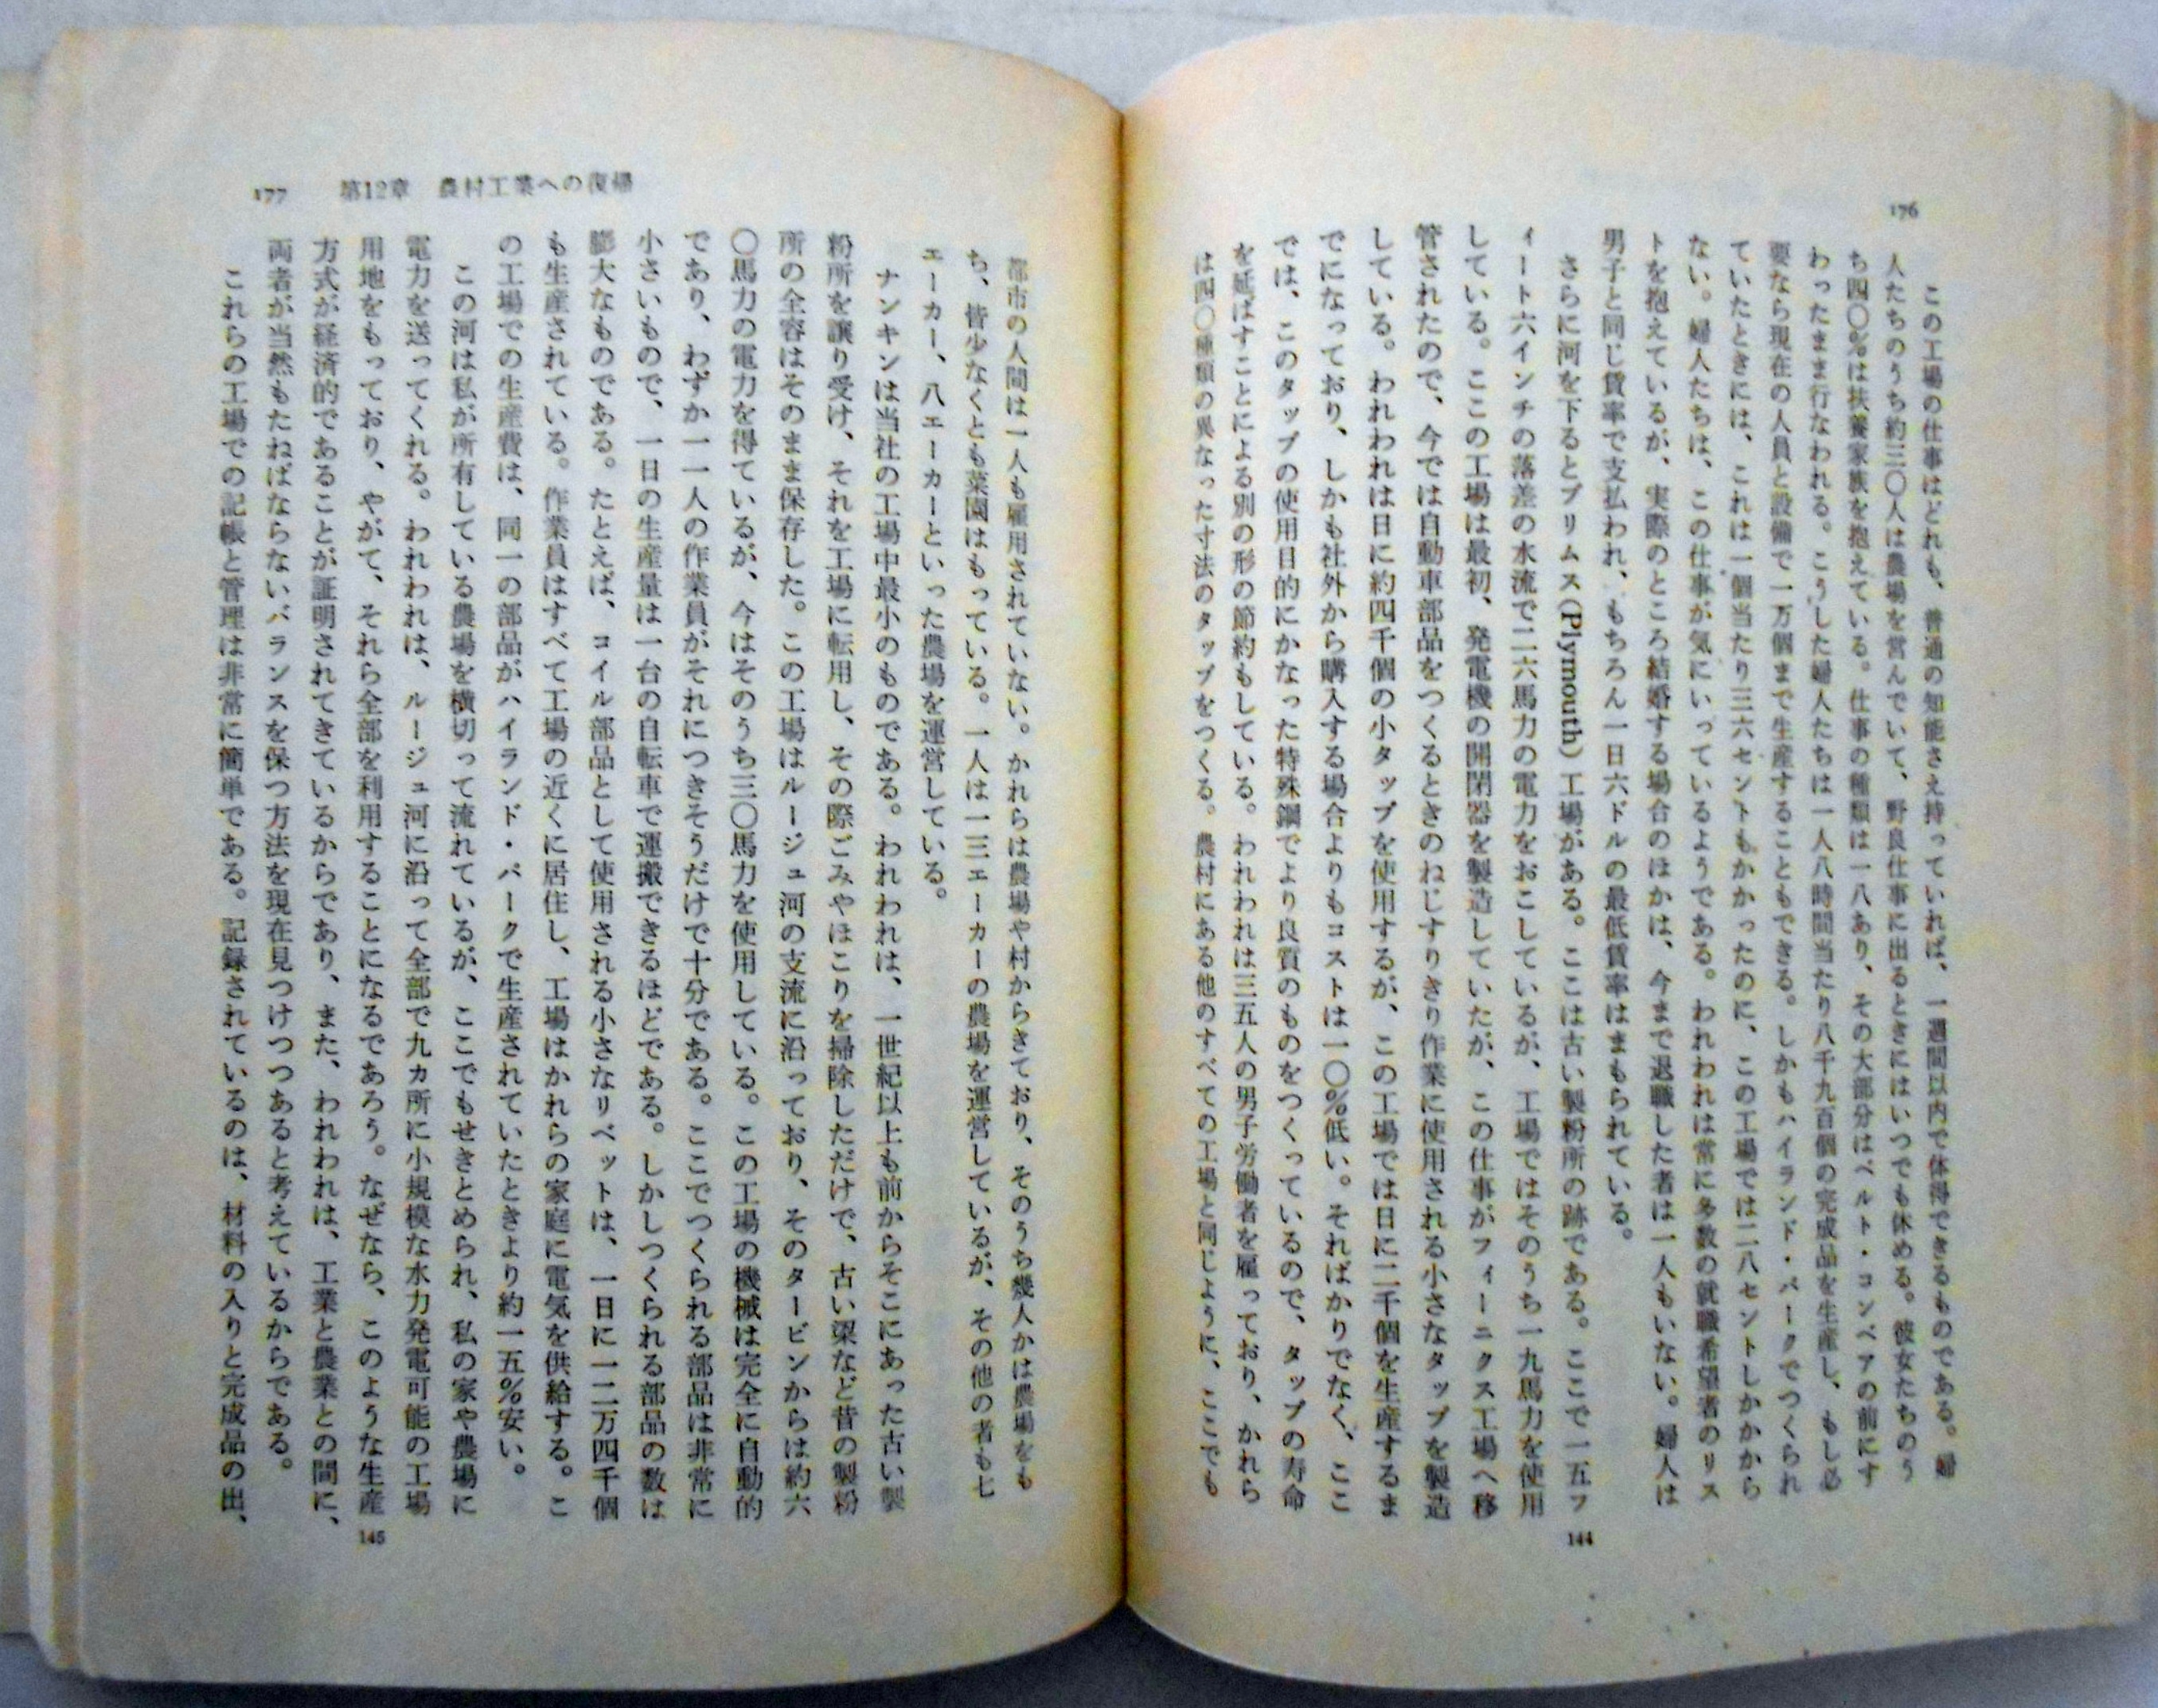 176
この工場の仕事はどれも、普通の知能さえ持っていれば、一週間以内で体得できるものである。婦
人たちのうち約三〇人は農場を営んでいて、野良仕事に出るときにはいつでも休める。彼女たちのう
ち四〇%は扶養家族を抱えている。仕事の種類は一八あり、その大部分はベルト・コンベアの前にす
わったまま行なわれる。こうした婦人たちは一人八時間当たり八千九百個の完成品を生産し、もし必
要なら現在の人員と設備で一万個まで生産することもできる。しかもハイランド・パークでつくられ
ていたときには、これは一個当たり三六セントもかかったのに、この工場では二八セントしかかから
ない。婦人たちは、この仕事が気にいっているようである。われわれは常に多数の就職希望者のリス
トを抱えているが、実際のところ結婚する場合のほかは、今まで退職した者は一人もいない。婦人は
男子と同じ賃率で支払われ、もちろん一日六ドルの最低賃率はまもられている。
さらに河を下るとプリムス(Plymouth)工場がある。ここは古い製粉所の跡である。ここで一五フ
ィート六インチの落差の水流で二六馬力の電力をおこしているが、工場ではそのうち一九馬力を使用
している。ここの工場は最初、発電機の開閉器を製造していたが、この仕事がフィーニクス工場へ移
管されたので、今では自動車部品をつくるときのねじすりきり作業に使用される小さなタップを製造
している。われわれは日に約四千個の小タップを使用するが、この工場では日に二千個を生産するま
でになっており、しかも社外から購入する場合よりもコストは一〇%低い。そればかりでなく、ここ
では、このタップの使用目的にかなった特殊鋼でより良質のものをつくっているので、タップの寿命
を延ばすことによる別の形の節約もしている。われわれは三五人の男子労働者を雇っており、かれら
は四〇種類の異なった寸法のタップをつくる。農村にある他のすべての工場と同じように、ここでも
144
177 第12章 農村工業への復帰
都市の人間は一人も雇用されていない。かれらは農場や村からきており、そのうち幾人かは農場をも
ち、皆少なくとも菜園はもっている。一人は一三エーカーの農場を運営しているが、その他の者も七
エーカー、八エーカーといった農場を運営している。
ナンキンは当社の工場中最小のものである。われわれは、一世紀以上も前からそこにあった古い製
粉所を譲り受け、それを工場に転用し、その際ごみやほこりを掃除しただけで、古い梁など昔の製粉
所の全容はそのまま保存した。この工場はルージュ河の支流に沿っており、そのタービンからは約六
〇馬力の電力を得ているが、今はそのうち三〇馬力を使用している。この工場の機械は完全に自動的
であり、わずか一一人の作業員がそれにつきそうだけで十分である。ここでつくられる部品は非常に
小さいもので、一日の生産量は一台の自転車で運搬できるほどである。しかしつくられる部品の数は
膨大なものである。たとえば、コイル部品として使用される小さなリベットは、一日に一二万四千個
も生産されている。作業員はすべて工場の近くに居住し、工場はかれらの家庭に電気を供給する。こ
の工場での生産費は、同一の部品がハイランド・パークで生産されていたときより約一五%安い。
この河は私が所有している農場を横切って流れているが、ここでもせきとめられ、私の家や農場に
電力を送ってくれる。われわれは、ルージュ河に沿って全部で九カ所に小規模な水力発電可能の工場
用地をもっており、やがて、それら全部を利用することになるであろう。なぜなら、このような生産
方式が経済的であることが証明されてきているからであり、また、われわれは、工業と農業との間に、
両者が当然もたねばならないバランスを保つ方法を現在見つけつつあると考えているからである。
これらの工場での記帳と管理は非常に簡単である。記録されているのは、材料の入りと完成品の出、
145